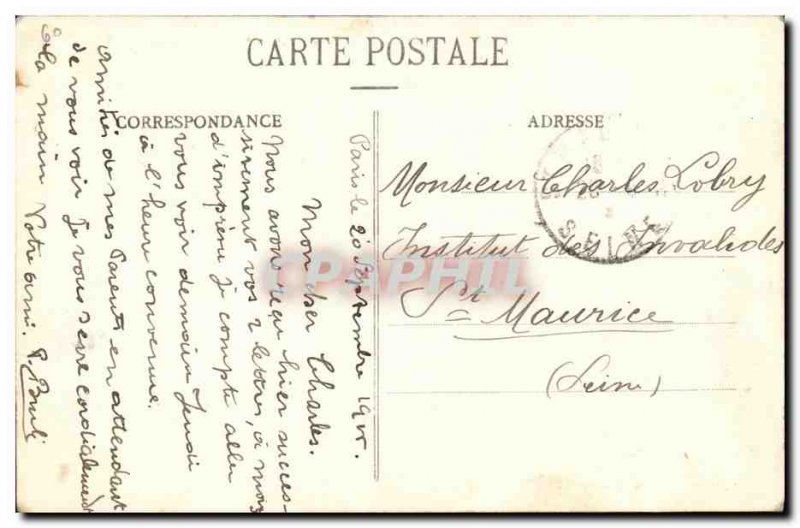 CARTE POSTALE
CORRESPONDANCE
ADRESSE
Paris le 20 Septembre 1915.
Mon cher Charles.
Nous avons reçu hier succes-
sivement vos 2 lettres, à moi
d'imprévu je compte aller
vous voir demain Jeudi
à l'heure convenue.
amitiés de mes Parents en attendant
de vous voir je vous serre cordialement
la main Votre ami. P.
Monsieur Charles Lobry
Institut des Invalides
St Maurice
(Seine)
SEINE
CPAPHIL